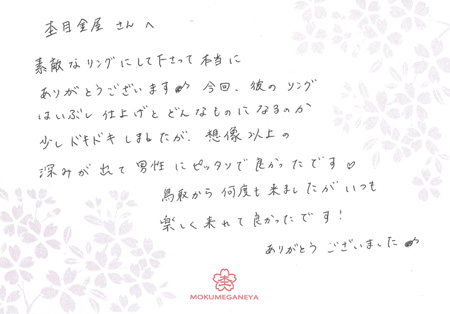 杢目金屋 さんへ
素敵なリングにして下さって本当に
ありがとうございます 今回、彼のリング
はいぶし仕上げと どんなものになるのか
少しドキドキしましたが、想像以上の
深みが出て男性にピッタリで良かったです♡
鳥取から何度も来ましたがいつも
楽しく来れて良かったです!
ありがとうございました
MOKUMEGANEYA